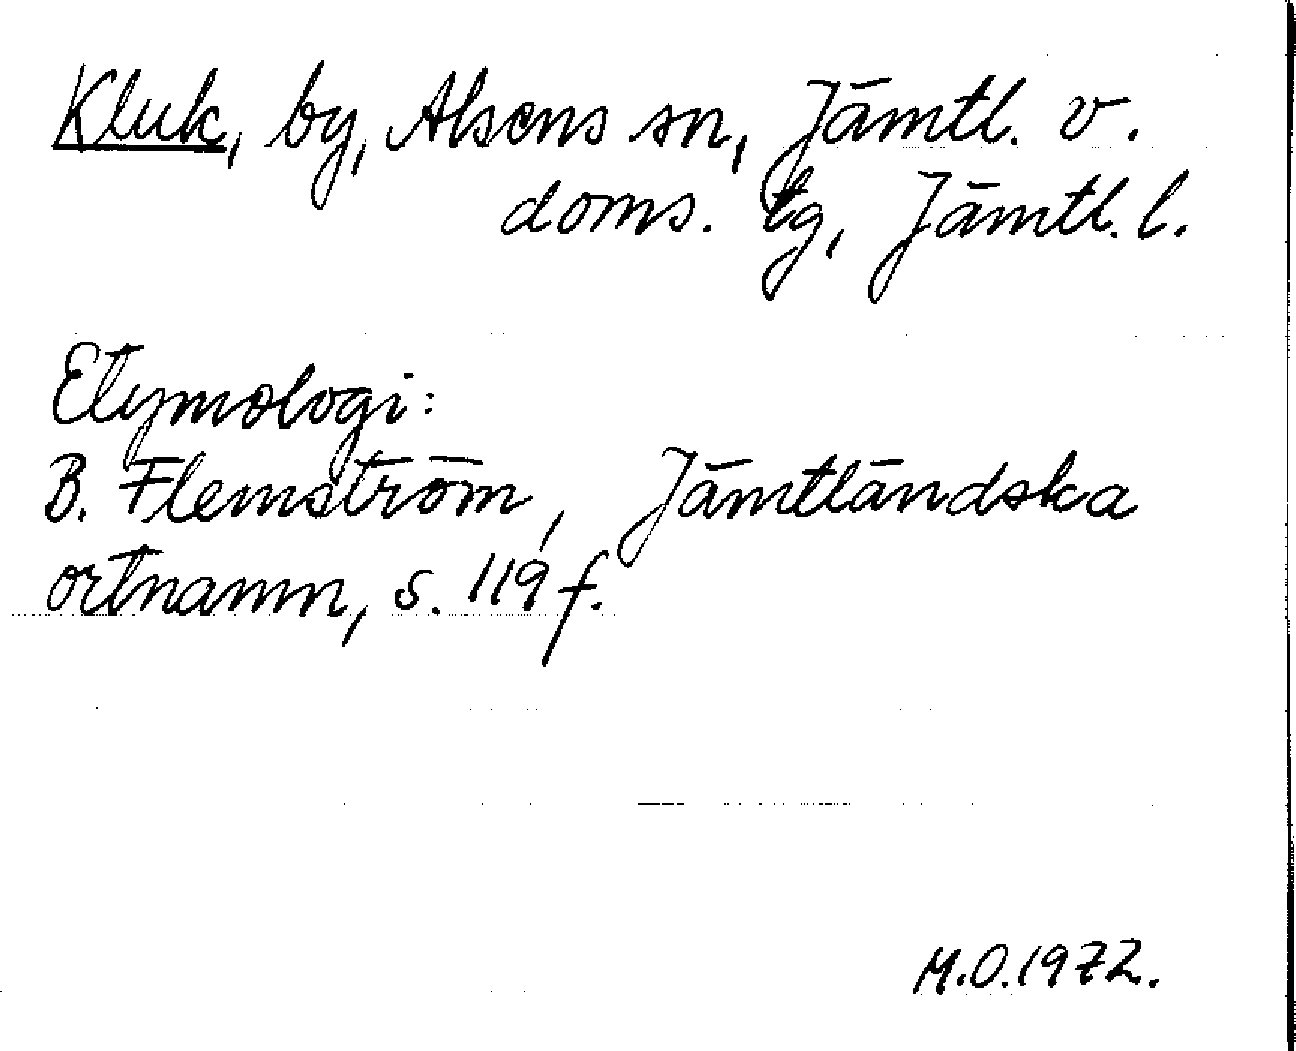 Kluk, by, Alsens sn, Jämtl. v.
doms. tg, Jämtl. l.
Etymologi:
B. Flemström, Jämtländska
ortnamn, s. 119 f.
M.O. 1972.